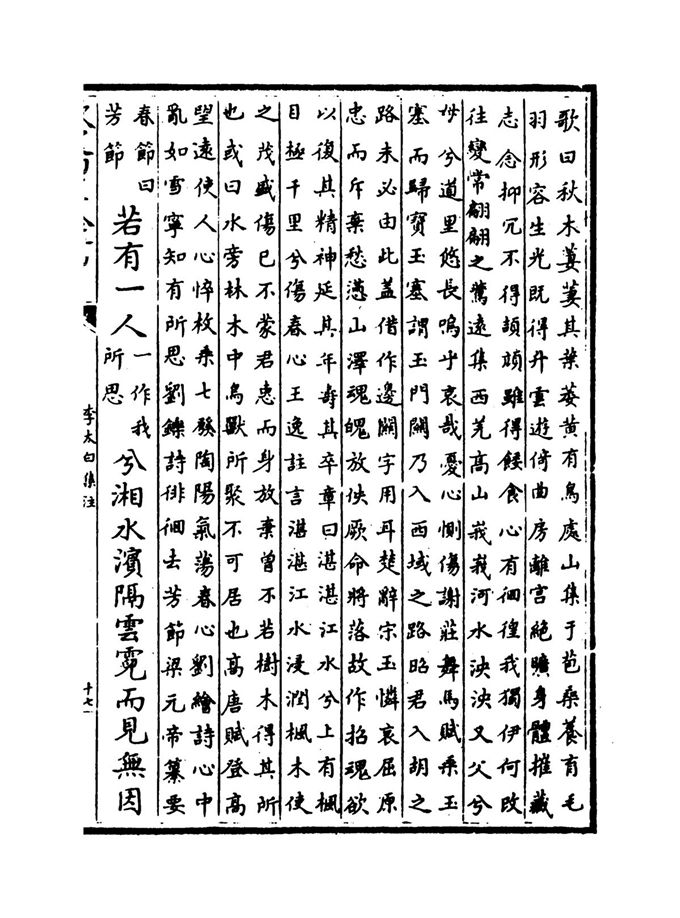 歌曰秋木萋萋其葉萎黄有鳥處山集于苞桑養育毛
羽形容生光既得升雲遊倚曲房離宫絶曠身體摧藏
志念抑冗不得頡頏雖得餧食心有徊徨我獨伊何改
往變常翩翩之鷰遠集西羌高山峩峩河水泱泱又父兮
母兮道里悠長嗚乎哀哉憂心惻傷謝莊舞馬賦乘玉
塞而歸寶玉塞謂玉門關乃入西域之路昭君入胡之
路未必由此盖借作邊關字用耳楚辭宋玉憐哀屈原
忠而斥棄愁懣山澤魂魄放佚厥命將落故作招魂欲
以復其精神延其年壽其卒章曰湛湛江水兮上有楓
目極千里兮傷春心王逸註言湛湛江水浸潤楓木使
之茂盛傷已不蒙君惠而身放棄曾不若樹木得其所
也或曰水旁林木中鳥獸所聚不可居也高唐賦登高
望遠使人心悴枚乘七發陶陽氣蕩春心劉繪詩心中
亂如雪寧知有所思劉鑠詩徘徊去芳節梁元帝纂要
春節曰
芳節
若有一人
一作我
所思
兮湘水濱隔雲霓而見無因
李太白集注
十七